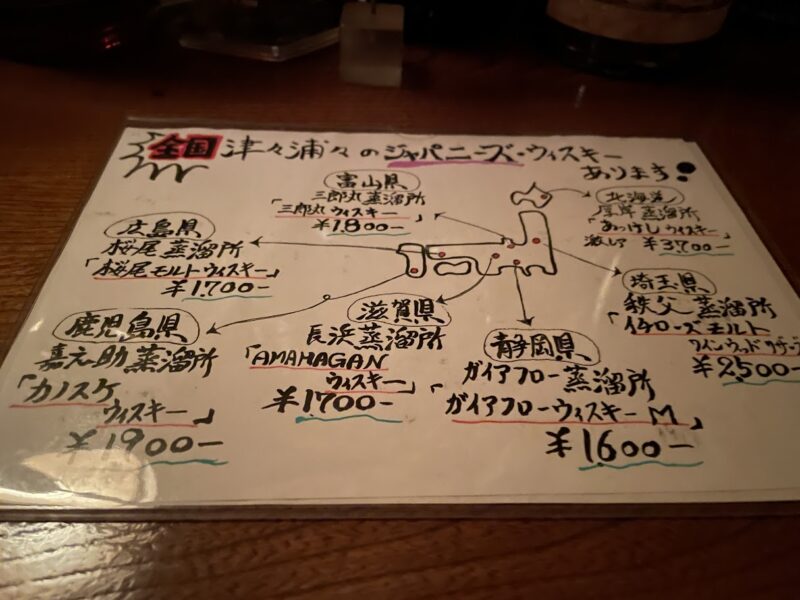 全国 津々浦々のジャパニーズ・ウィスキー
あります!
富山県
三郎丸蒸溜所
「三郎丸ウィスキー」
¥1,800-
北海道
厚岸蒸溜所
「あっけしウィスキー」
激レア ¥3,700-
広島県
桜尾蒸溜所
「桜尾モルトウィスキー」
¥1,700-
埼玉県
秩父蒸溜所
「イチローズモルト
ワインウッドリザーブ
¥2,500-
鹿児島県
嘉之助蒸溜所
「カノスケ
ウィスキー」
¥1900-
滋賀県
長浜蒸溜所
「AMAHAGAN
ウィスキー」
¥1700-
静岡県
ガイアフロー蒸溜所
「ガイアフローウィスキーM」
¥1600-